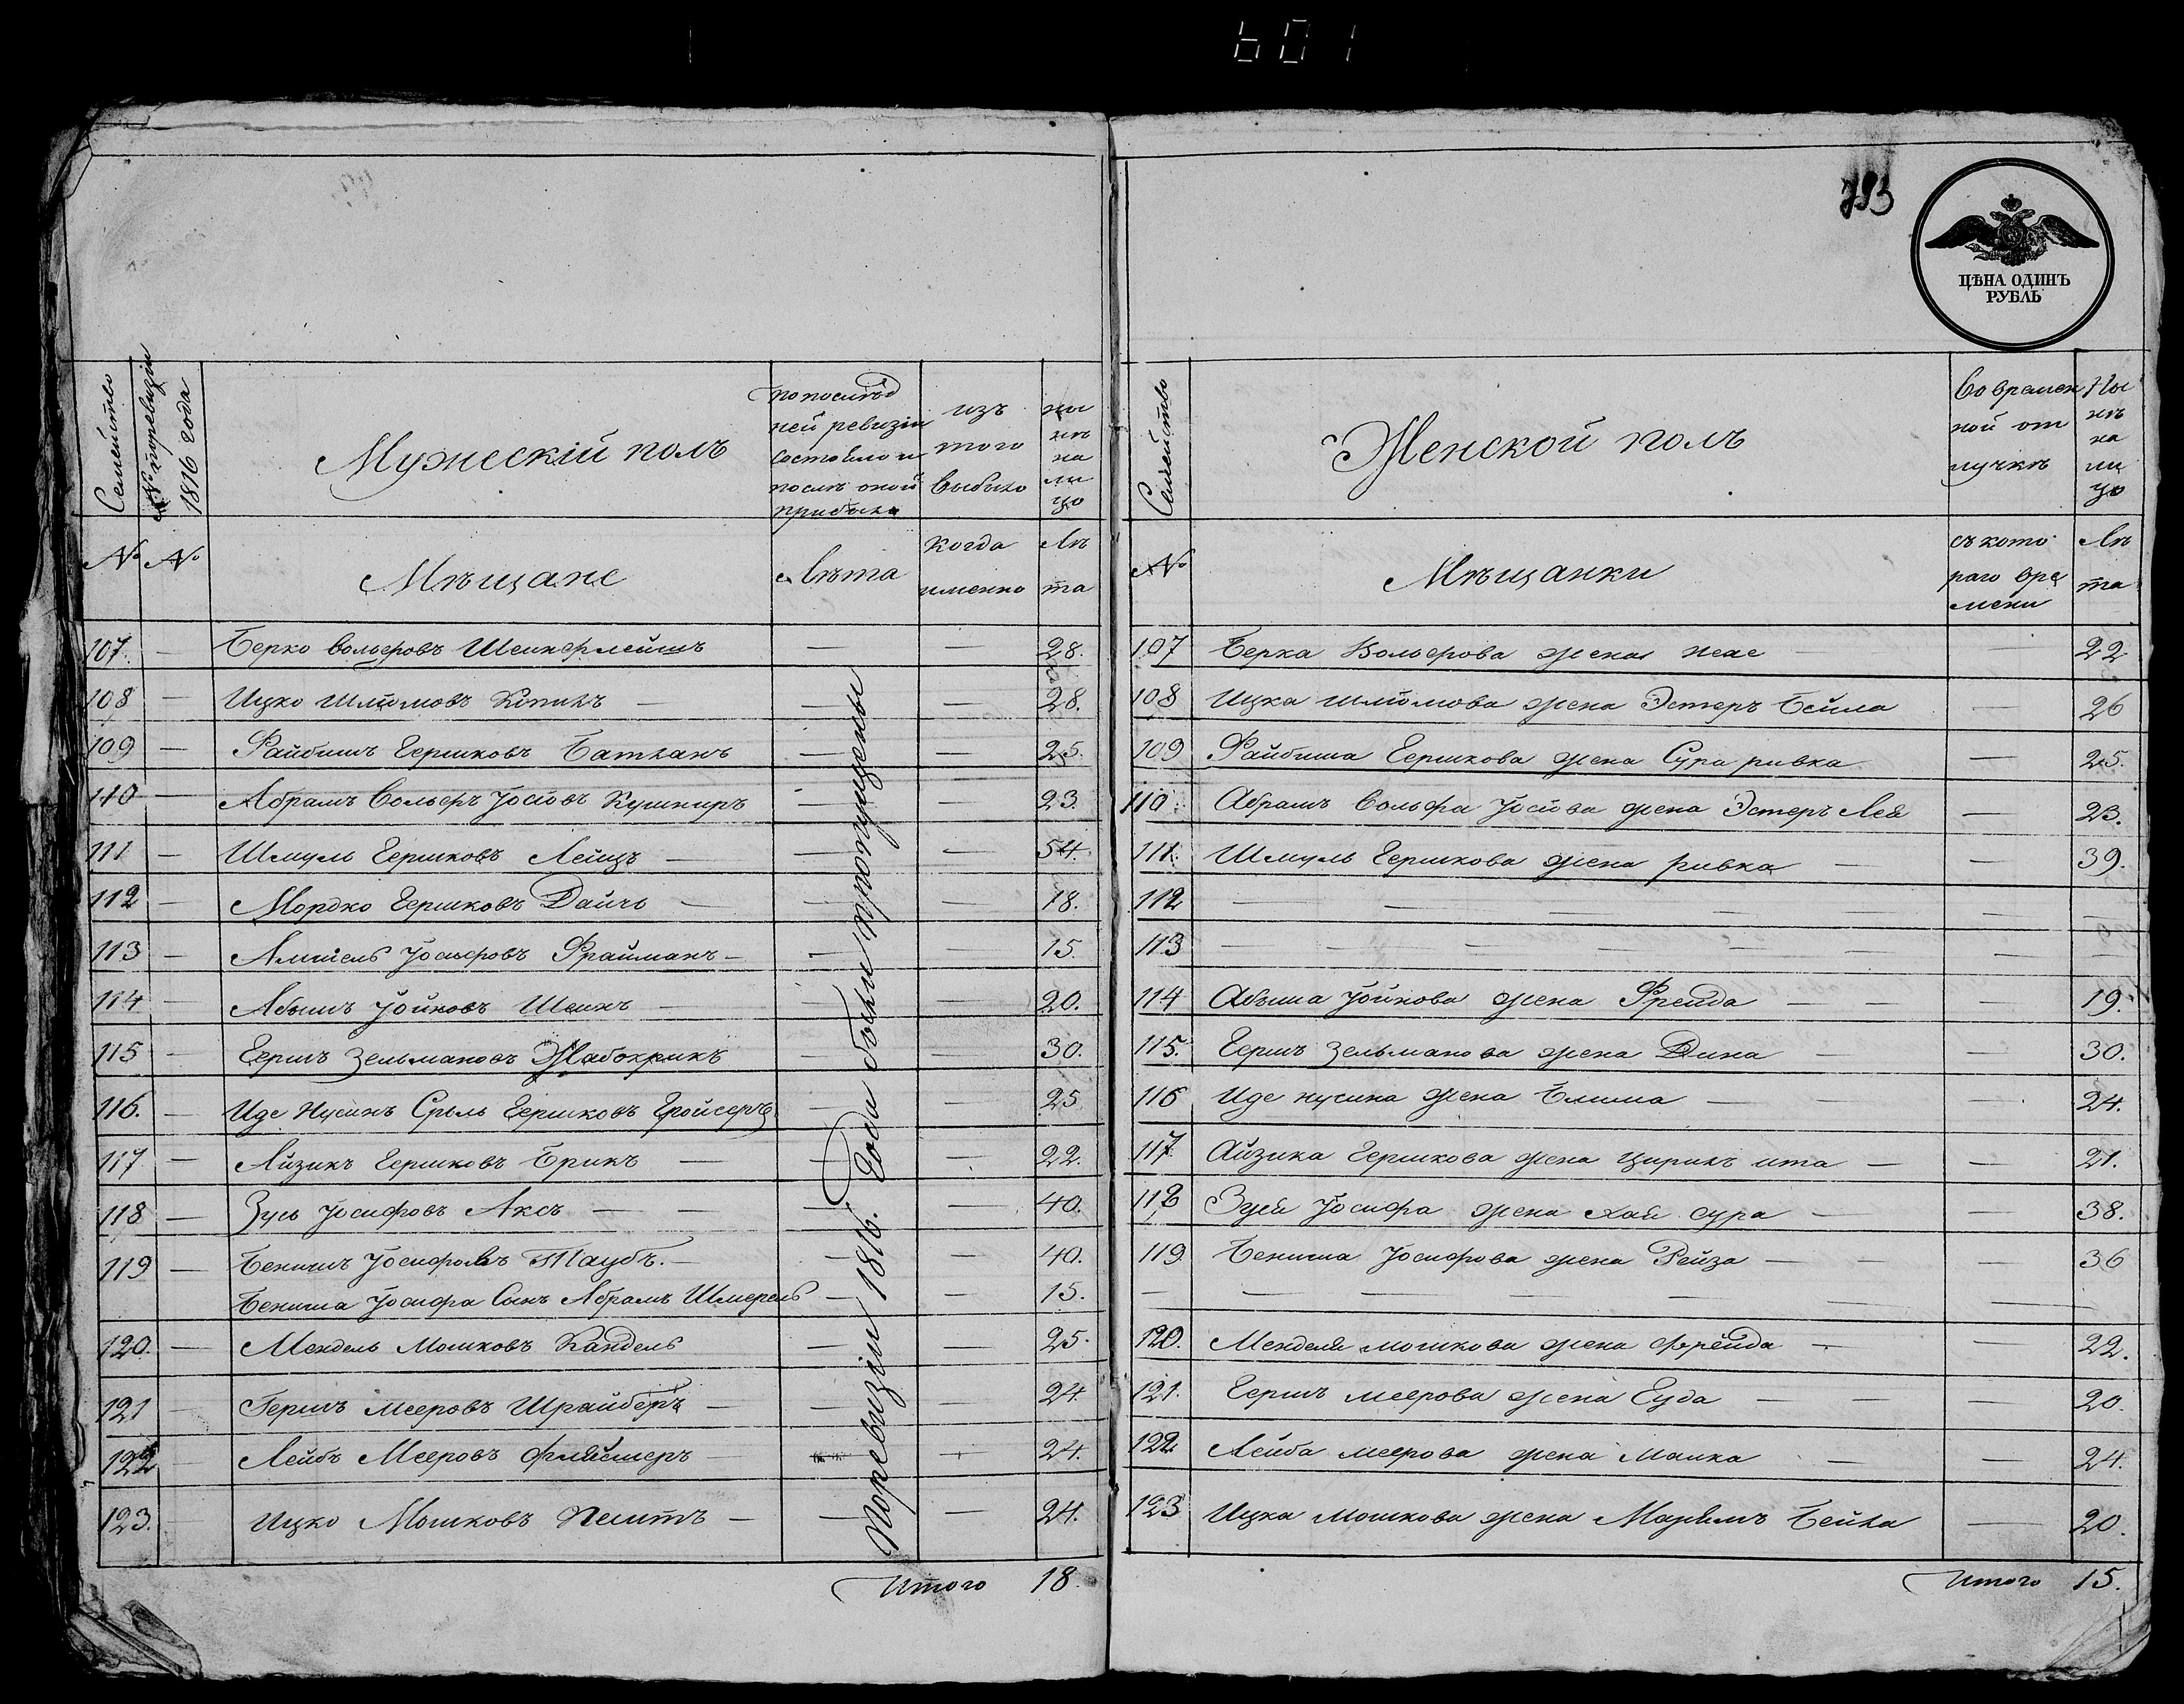 601
793
ЦѢНА ОДИНЪ
РУБЛЬ
Семейство
№ поревизіи
1816 года
Мужескій полъ
попослѣд
ней ревизіи
состояло и
послѣ оной
прибыло
изъ
того
выбыло
ны
нѣ
на
ли
цо
№ №
Мѣщане
лѣта
когда
именно
Лѣ
та
107. — Берко Вольфовъ Шейнфлейшъ — — 28.
108 — Ицко Шлiомовъ Копилъ — — — 28.
109 — Файбишъ Гершковъ Батланъ — — 25.
110 — Абрамъ Вольфъ Іосiовъ Кушниръ — — 23.
111 — Шмуль Гершковъ Лейцъ — — — 54.
112 — Мордко Гершковъ Дайчъ — — — 18.
113 — Іосифовъ Фрайманъ — — — 15.
114 — Абышъ Іойновъ Шеинъ — — — 20.
115 — Гершъ Зельмановъ Жабокрикъ — — 30.
116. — Иде Нусинъ Сруль Гершковъ Гройсеръ — — 25
117 — Айзикъ Гершковъ Брикъ — — — 22.
118 — Зусь Іосифовъ Аксъ — — — — 40.
119 — Бенишъ Іосифовъ Таубъ. — — — 40.
Бениша Іосифа Сынъ Абрамъ Шмерель — — 15.
120. — Мендель Мошковъ Кандель — — 25.
121 — Гершъ Мееровъ Шрайберъ — — — 24.
122 — Лейбъ Мееровъ Флейшеръ — — 24.
123. — Ицко Мошковъ Пешть — — — 24.
Поревизіи 1816. Года были пропущены
Итого 18.
Семейство
Женской полъ
Во времен
ной от
лучкѣ
Ны
нѣ
на
ли
цо
№
Мѣщанки
съ кото
раго вре
мени
Лѣ
та
107 Берка Вольфова жена — — 22
108 Ицка Шлiомова жена Эстеръ Бейла — 26
109 Файбиша Гершкова жена Сура ривка — 25.
110. Абрамъ Вольфа Іосiова жена Эстеръ Лея — 23.
111. Шмуль Гершкова жена ривка — — 39.
112 — — — — — — — —
113 — — — — — — — —
114 Абыша Іойнова жена Фрейда — — — 19.
115. Гершъ Зельманова жена Дина — — 30.
116 Иде нусина жена Блима — — — 24.
117. Айзика Гершкова жена Цирикъ ита — — 21.
118 Зуси Іосифа жена хая сура — — 38.
119. Бениша Іосифова жена Рейза — — — 36
— — — — — — — —
120. Менделя мошкова жена Фрейда — — 22.
121. Гершъ меерова жена Гуда — — — 20.
122 Лейба меерова жена Малка — — 24.
123 Ицка мошкова жена Марьямъ Бейла — 20.
Итого 15.